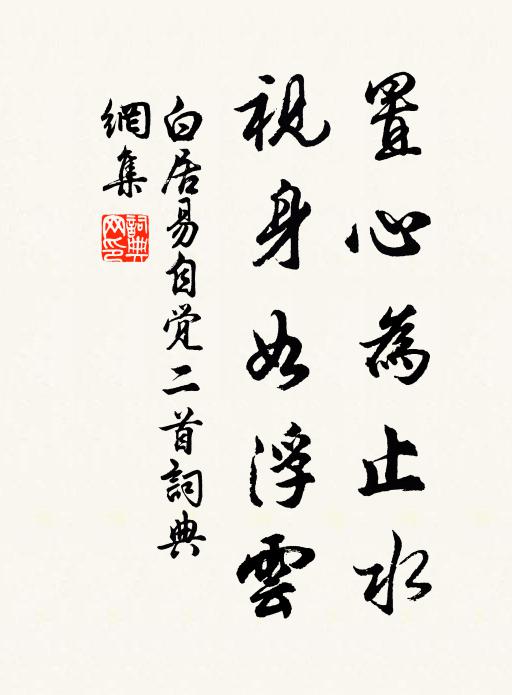 置心為止水
視身如浮雲
白居易自覚二首詞典
網集
詞典
网印